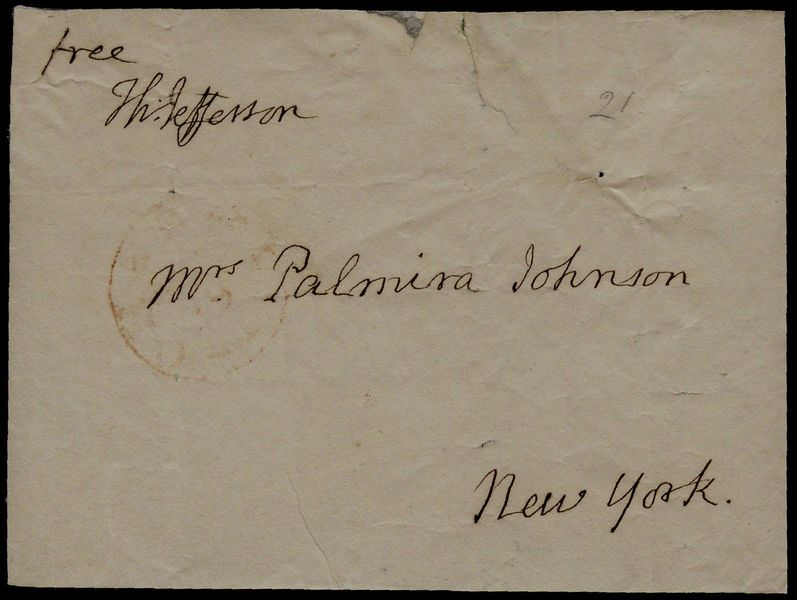 free
Th: Jefferson
21
Mrs Palmira Johnson
New York.